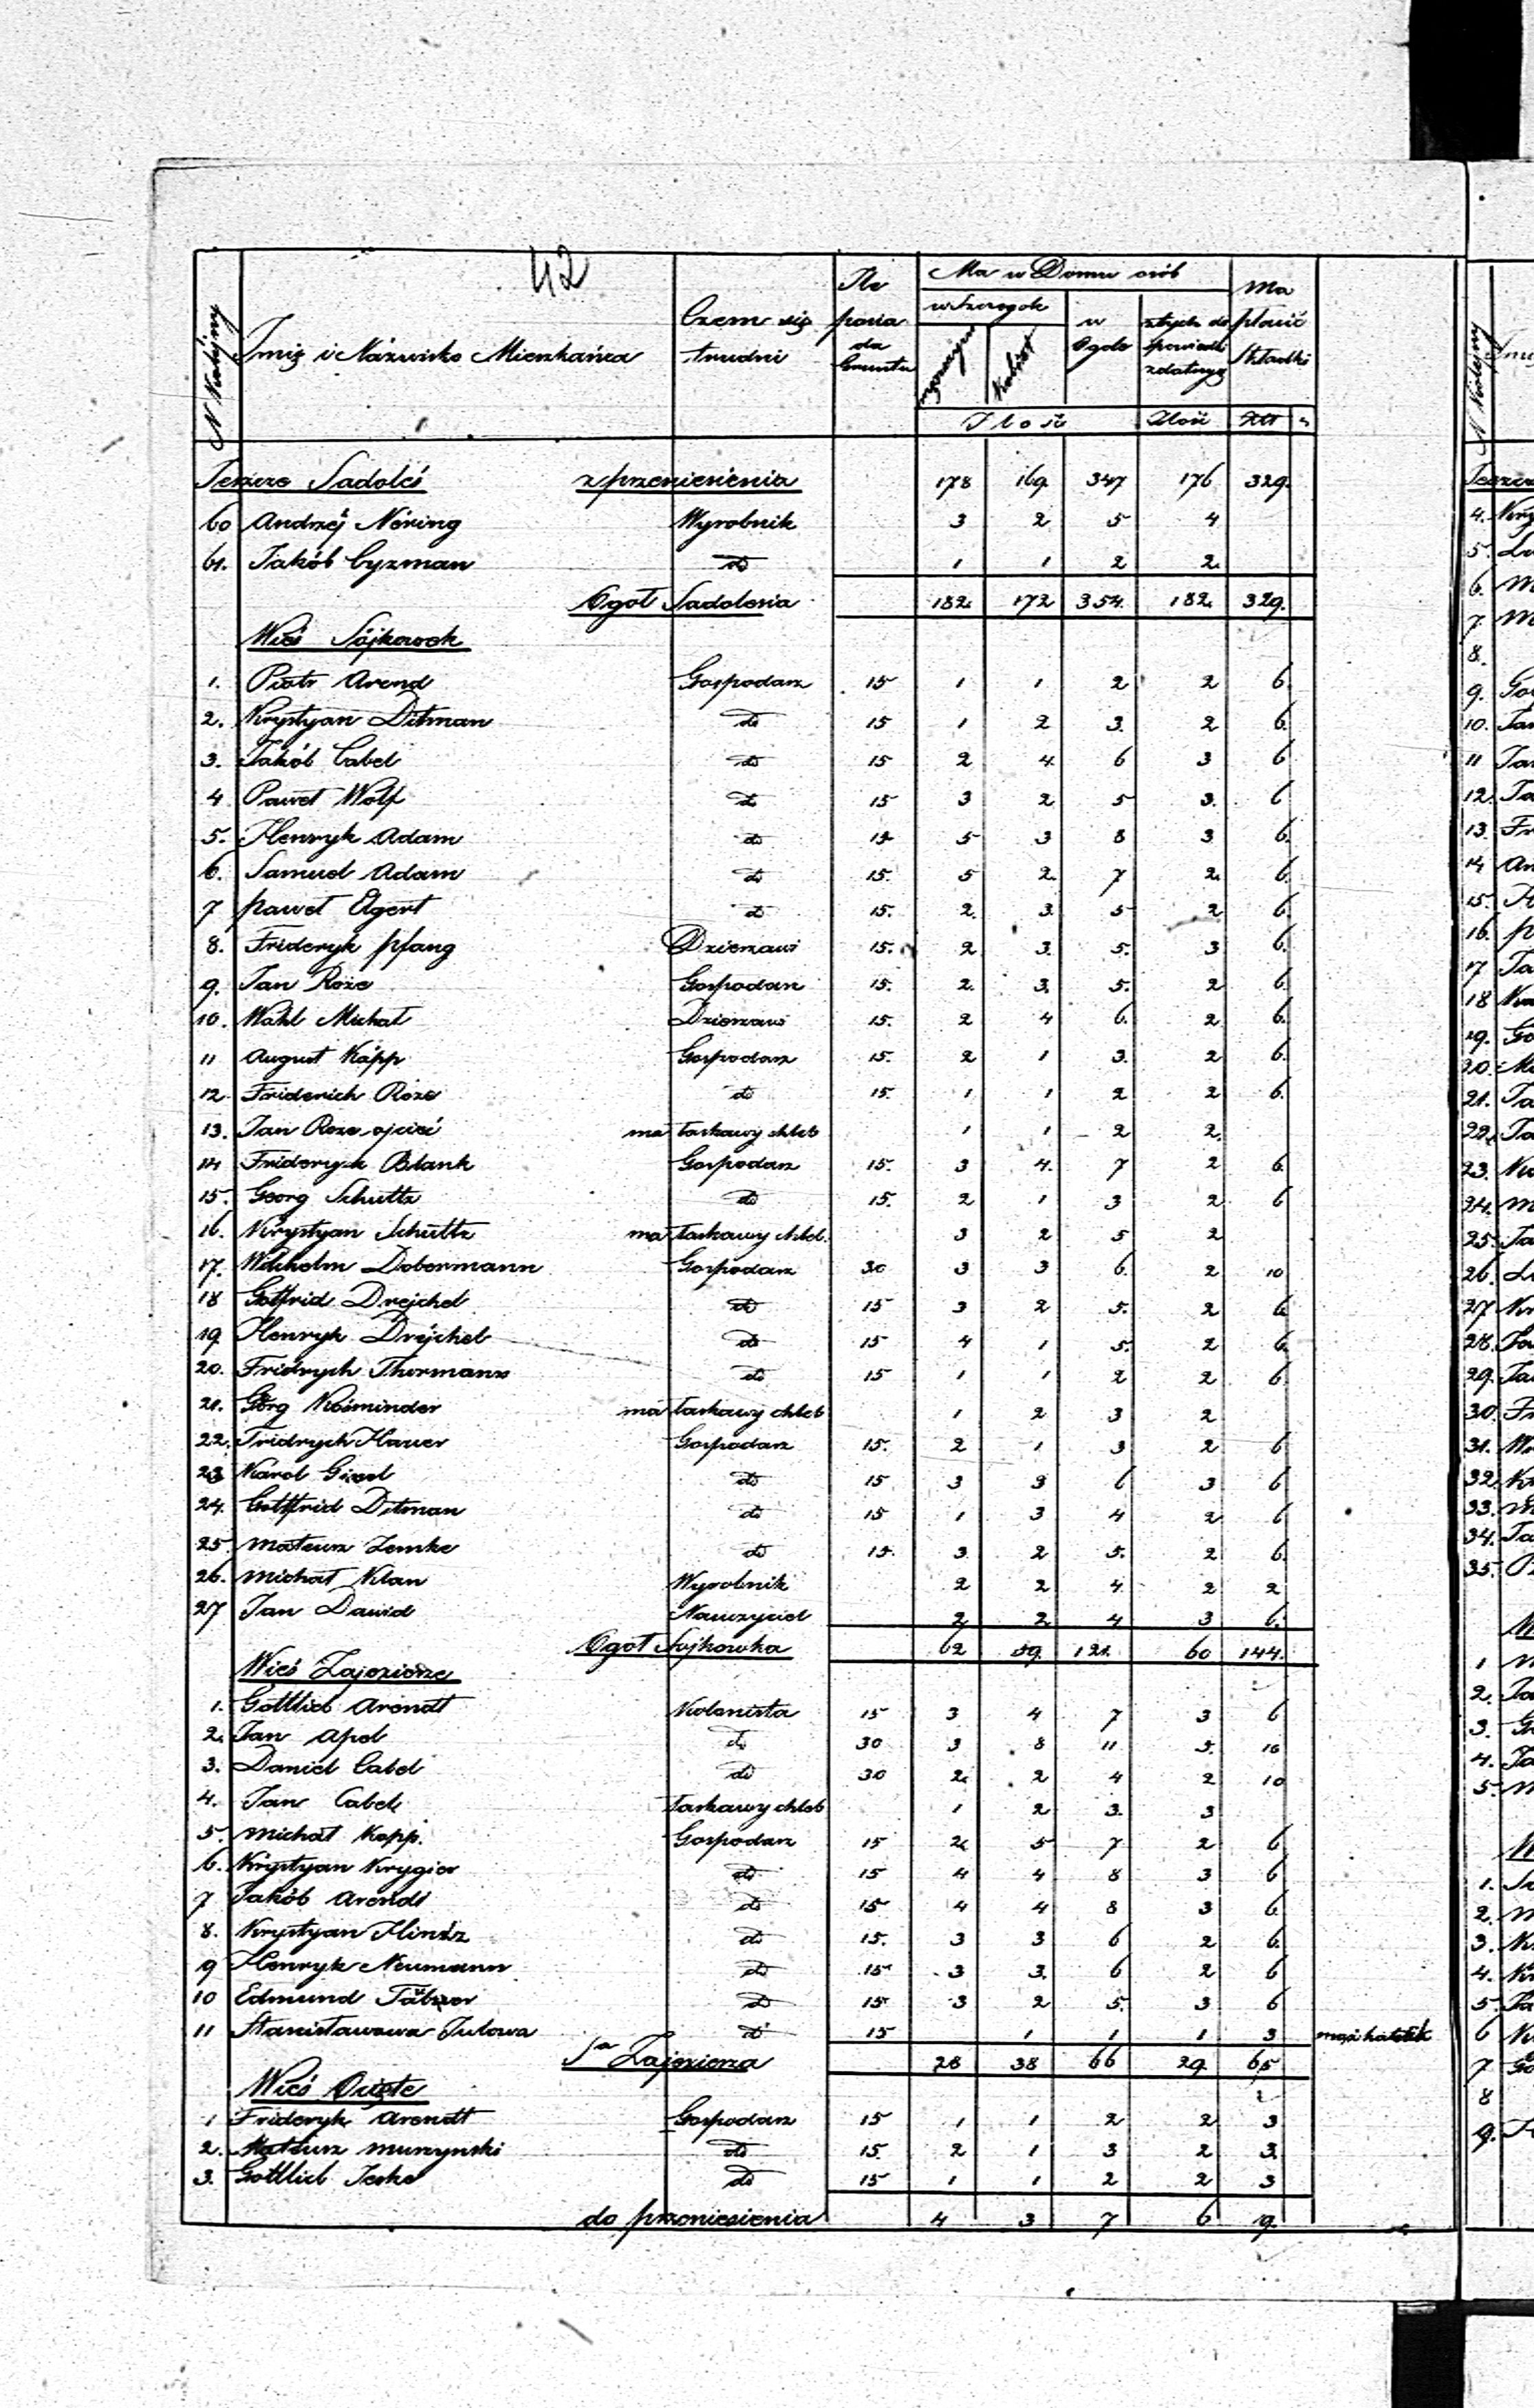 42
N Kolejny | Imię i Názwisko Mieszkańca | Czem się trudni | Ile posia da Gruntu | Ma w Domu osób | Ma płacić Składki
wszczegole | w Ogole | ztych do spowiedzi zdatnych
męzczyzn | Kobiet
Ilość | Ilość | Złł | g
Jeszcze Sadoleś z przeniesienia 178 169 347 176 329.
60 Andrzej Néring Wyrobnik 3 2 5 4
61. Jakób Cyzman do 1 1 2 2
Ogoł Sadolesia 182. 172 354. 182. 329.
Wieś Sójkowek
1. Piotr Arend Gospodarz 15 1 1 2 2 6
2. Krystyan Ditman do 15 1 2 3. 2 6.
3. Jakób Cabel do 15 2 4 6 3 6
4 Paweł Wolf do 15 3 2 5 3. 6
5. Henryk Adam do 15 5 3 8 3 6.
6. Samuel Adam do 15. 5 2 7 2. 6.
7 paweł Agert do 15. 2. 3. 5 2 6.
8. Frideryk pfang Dzierzawi 15. 2 3. 5. 3 6.
9. Jan Roze Gospodarz 15. 2. 3. 5. 2 6.
10. Wahl Michał Dzierzawi 15. 2 4 6. 2 6.
11 August Kápp Gospodarz 15. 2 1 3. 2 6.
12 Friderich Roze do 15. 1 1 2 2 6.
13. Jan Roze ojciec ma łaskawy chleb 1 1 2 2.
14 Frideryk Blank Gospodarz 15. 3 4. 7 2 6.
15. Georg Schultz do 15. 2 1 3 2 6
16. Krystyan Schultz ma łaskawy chleb. 3 2 5 2
17. Wilhelm Dobermann Gospodarz 30 3 3 6. 2 10
18 Gotfrid Drejchel do 15 3 2 5. 2 6
19 Henryk Drejchel do 15 4 1 5. 2 6.
20. Fridrych Thormann do 15 1 1 2 2 6
21. Görg Kośminder ma łaskawy chleb 1 2 3 2
22. Fridrych Hauer Gospodarz 15. 2 1 3 2 6
23 Karol Giesel do 15 3 3 6 3 6
24. Gottfrid Ditman do 15 1 3 4 2 6
25. Mateusz Zemke do 15. 3. 2 5. 2 6.
26. Michał Klan Wyrobnik 2 2 4 2 2
27 Jan Dawid Nauczyciel 2 2 4 3 6.
Ogoł Sojkowka 62 59. 121. 60 144.
Wieś Zajezierze
1. Gottlieb Arendt Kolonista 15 3 4 7 3 6
2. Jan Apel do 30 3 8 11 5. 10
3. Daniel Cabel do 30 2. 2 4 2 10
4. Jan Cabel łaskawy chleb 1 2 3. 3
5. Michał Kapp. Gospodarz 15 2 5 7 2 6
6. Krystyan Krygier do 15 4 4 8 3 6
7 Jakób Arendt do 15 4 4 8 3 6.
8. Krystyan Hintz do 15. 3 3 6 2 6.
9 Henryk Neumann do 15 3 3. 6 2 6
10 Edmund do 15 3 2 5. 3 6
11 Stanisławowa Julowa do 15 1 1 1 3 mąż katolik
Sa Zajezierza 28 38 66 29. 65
Wieś
1 Frideryk Arendt Gospodarz 15 1 1 2 2 3
2. Mateusz Murzynski do 15. 2 1 3 2 3.
3. Gottlieb Jeske do 15 1 1 2 2 3
do przeniesienia 4 3 7 6 9.